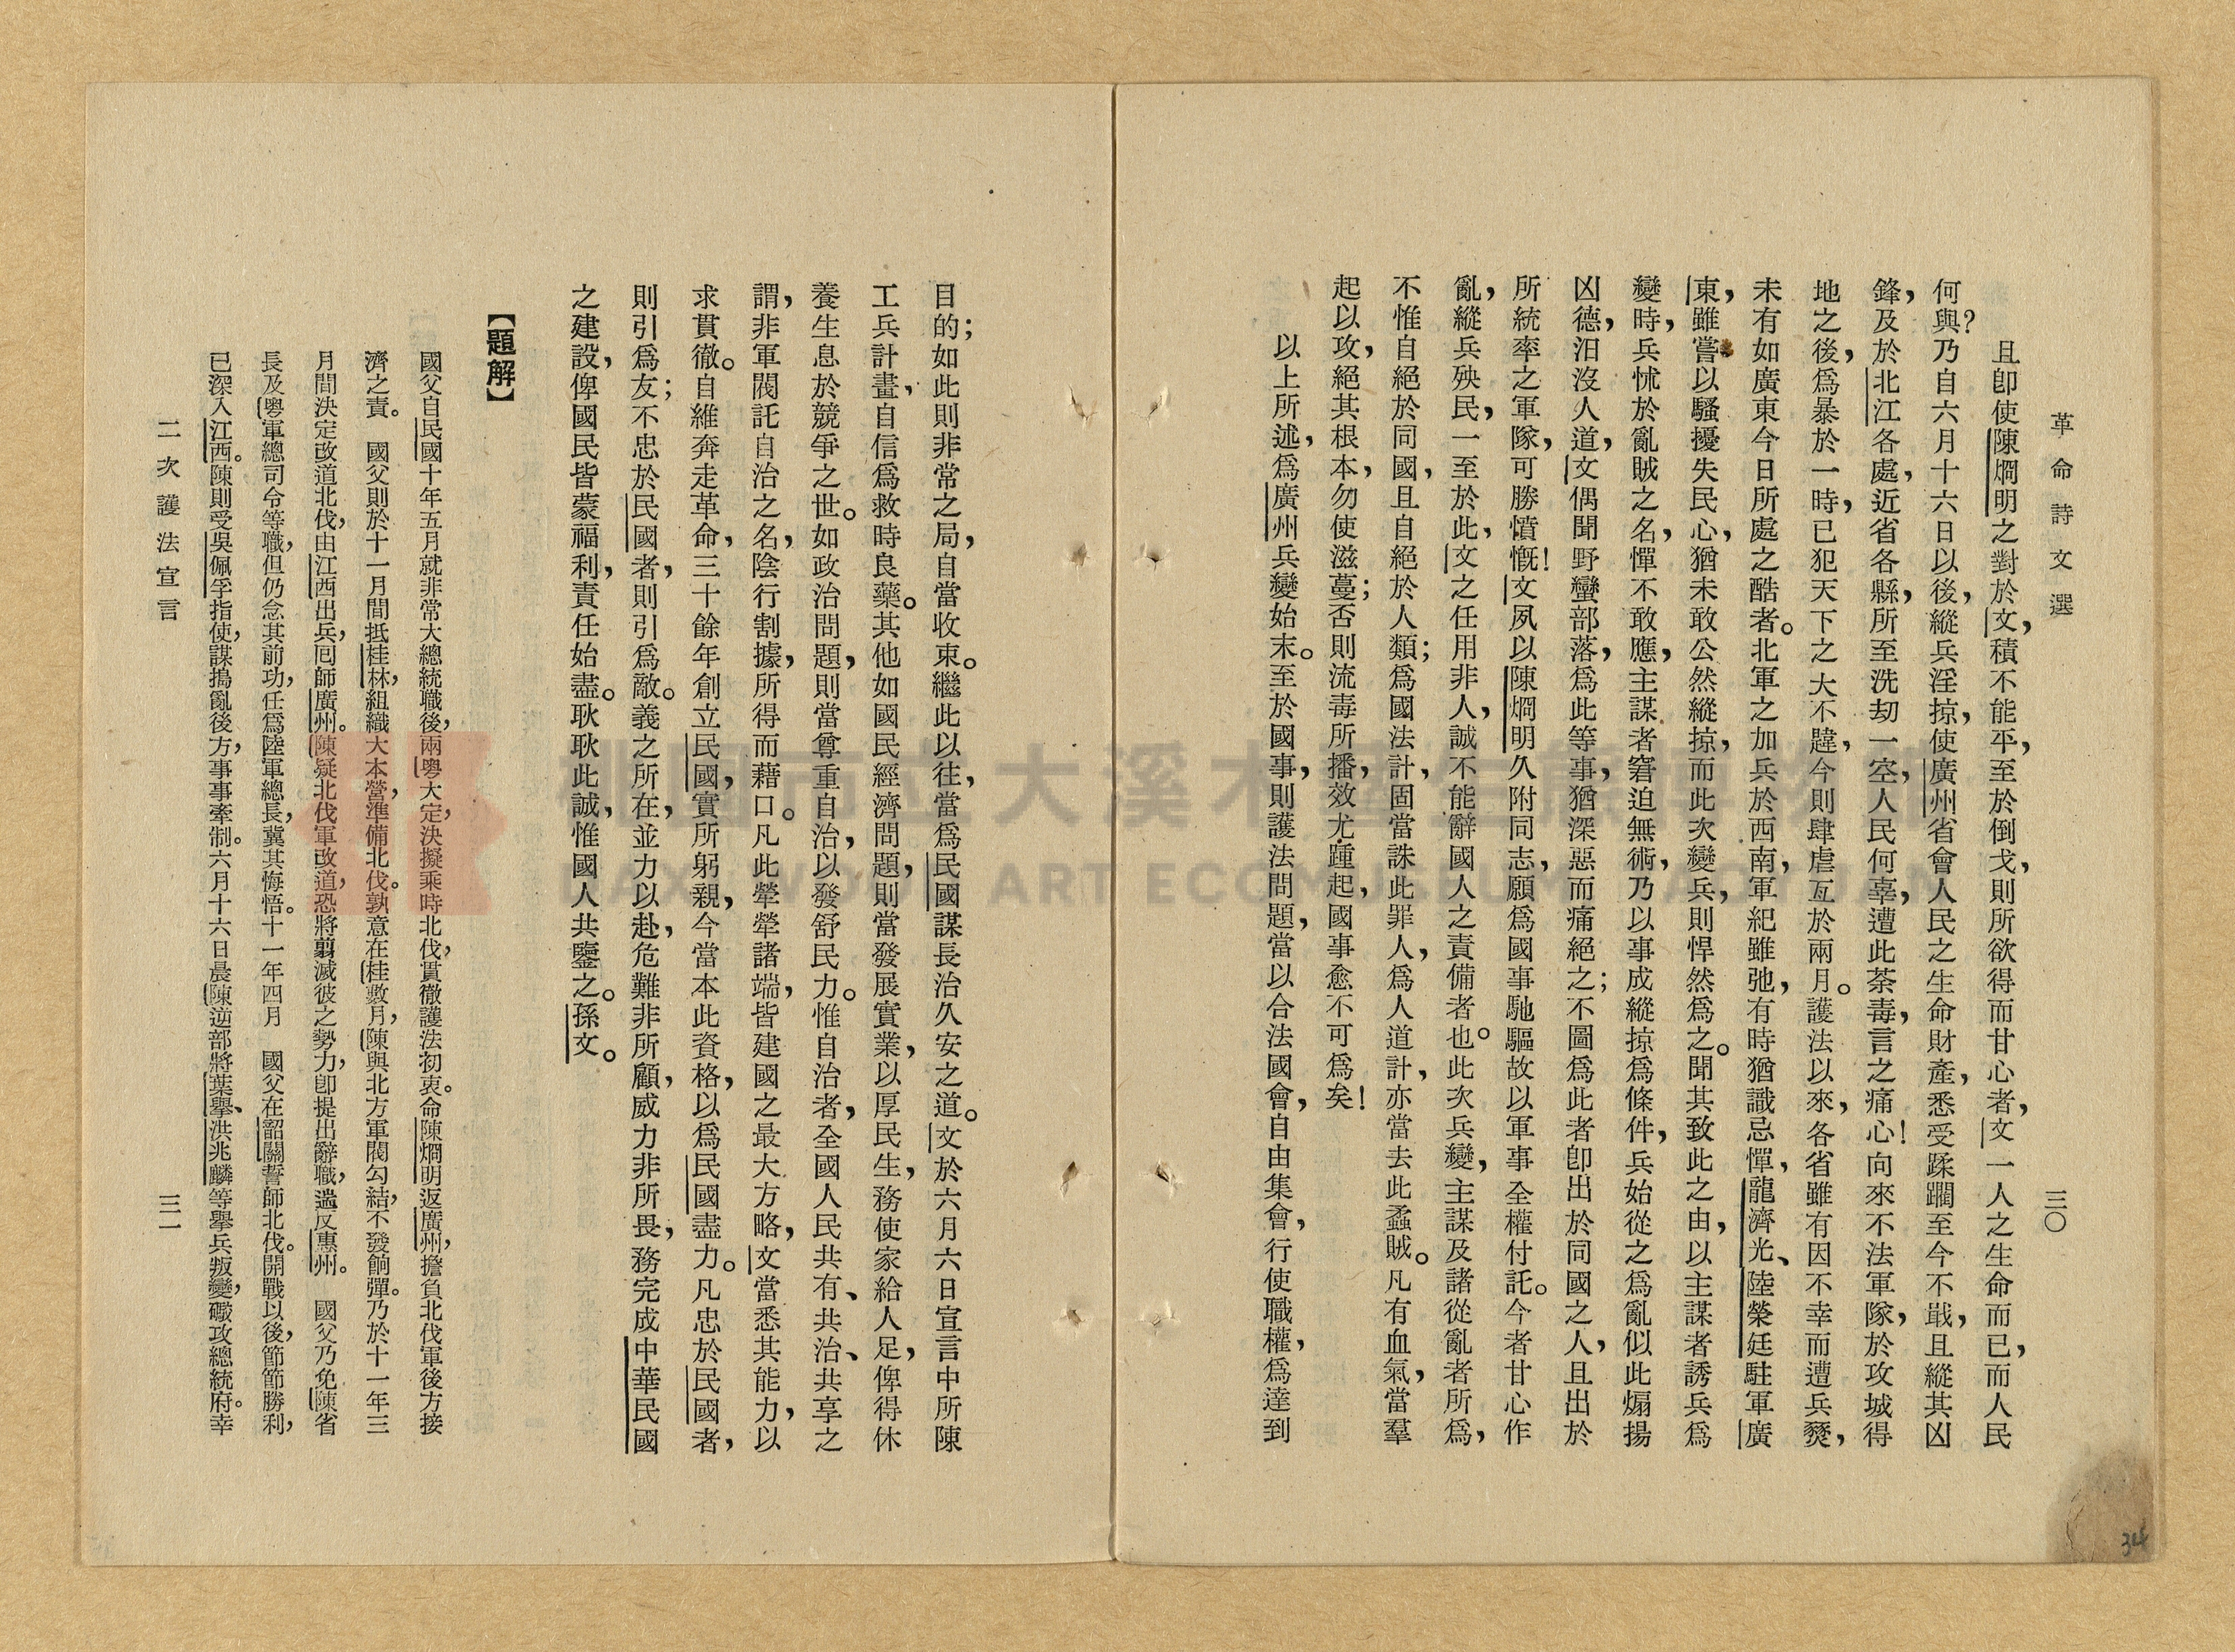 革命詩文選
三〇
且卽使陳烱明之對於文，積不能平，至於倒戈，則所欲得而甘心者，文一人之生命而已，而人民
何與？乃自六月十六日以後，縱兵淫掠，使廣州省會人民之生命財產，悉受蹂躪至今不戢，且縱其凶
鋒，及於北江各處，近省各縣，所至洗刼一空，人民何辜，遭此荼毒，言之痛心！向來不法軍隊，於攻城得
地之後，爲暴於一時，已犯天下之大不韙，今則肆虐亙於兩月。護法以來，各省雖有因不幸而遭兵燹，
未有如廣東今日所處之酷者。北軍之加兵於西南，軍紀雖弛，有時猶識忌憚，龍濟光、陸榮廷駐軍廣
東，雖嘗以騷擾失民心，猶未敢公然縱掠，而此次變兵，則悍然爲之。聞其致此之由，以主謀者誘兵爲
變時，兵怵於亂賊之名，憚不敢應，主謀者窘迫無術，乃以事成縱掠爲條件，兵始從之爲亂似此煽揚
凶德，汨沒人道，文偶聞野蠻部落，爲此等事，猶深惡而痛絕之；不圖爲此者卽出於同國之人，且出於
所統率之軍隊，可勝憤慨！文夙以陳烱明久附同志，願爲國事馳驅故以軍事全權付託。今者甘心作
亂，縱兵殃民，一至於此，文之任用非人，誠不能辭國人之責備者也。此次兵變，主謀及諸從亂者所爲，
不惟自絕於同國，且自絕於人類；爲國法計，固當誅此罪人，爲人道計，亦當去此蟊賊。凡有血氣，當羣
起以攻，絕其根本，勿使滋蔓；否則流毒所播，效尤踵起，國事愈不可爲矣！
以上所述，爲廣州兵變始末。至於國事，則護法問題，當以合法國會，自由集會，行使職權，爲達到
目的；如此則非常之局，自當收束。繼此以往，當爲民國謀長治久安之道。文於六月六日宣言中所陳
工兵計畫，自信爲救時良藥。其他如國民經濟問題，則當發展實業，以厚民生，務使家給人足，俾得休
養生息於競爭之世。如政治問題，則當尊重自治，以發舒民力。惟自治者，全國人民共有、共治、共享之
謂，非軍閥託自治之名，陰行割據，所得而藉口。凡此犖犖諸端，皆建國之最大方略，文當悉其能力，以
求貫徹。自維奔走革命，三十餘年創立民國，實所躬親，今當本此資格，以爲民國盡力。凡忠於民國者，
則引爲友；不忠於民國者，則引爲敵。義之所在，並力以赴，危難非所顧，威力非所畏，務完成中華民國
之建設，俾國民皆蒙福利，責任始盡。耿耿此誠，惟國人共鑒之。孫文。
【題解】
國父自民國十年五月就非常大總統職後，兩粵大定，決擬乘時北伐，貫徹護法初衷。命陳烱明返廣州，擔負北伐軍後方接
濟之責。　國父則於十一月間抵桂林，組織大本營，準備北伐。孰意在桂數月，陳與北方軍閥勾結，不發餉彈。乃於十一年三
月間決定改道北伐，由江西出兵，囘師廣州。陳疑北伐軍改道，恐將翦滅彼之勢力，卽提出辭職，遄反惠州。　國父乃免陳省
長及粵軍總司令等職，但仍念其前功，任爲陸軍總長，冀其悔悟。十一年四月　國父在韶關誓師北伐。開戰以後，節節勝利，
已深入江西。陳則受吳佩孚指使，謀搗亂後方，事事牽制。六月十六日晨，陳逆部將葉擧、洪兆麟等擧兵叛變，礮攻總統府。幸
二次護法宣言
三一
桃園市立大溪木藝生態博物館
DAXI WOOD ART ECOMUSEUM, TAOYUAN
34